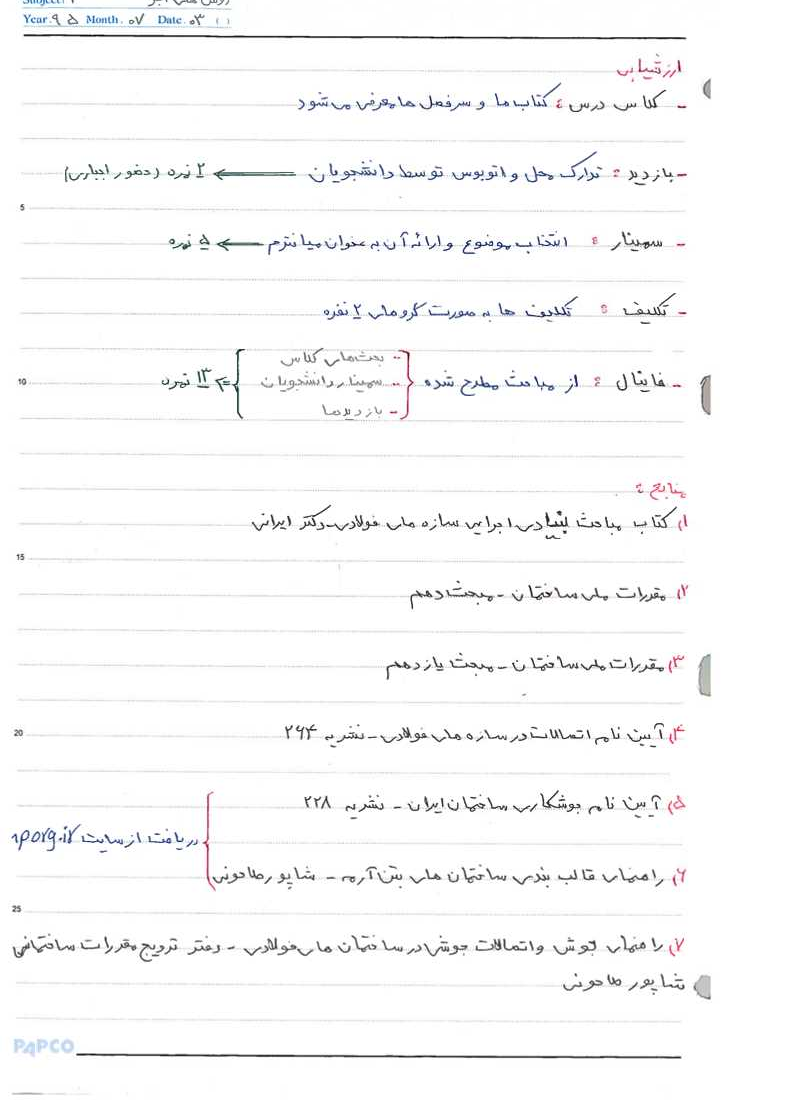 Year. ۹۵ Month. ۰۷ Date. ۰۳ ( )
ارزشیابی
- کلاس درس : کتاب ها و سرفصل ها معرفی می شود
- بازدید : تدارک محل و اتوبوس توسط دانشجویان ← ۲ نمره (حضور اجباری)
5
- سمینار : انتخاب موضوع و ارائه آن به عنوان میانترم ← ۵ نمره
- تکلیف : تکلیف ها به صورت گروهای ۲ نفره
- فاینال : از مباحث مطرح شده
-- بحث های کلاس
-- سمینار دانشجویان
- بازدیدها
⇐ ۱۳ نمره
10
منابع :
۱) کتاب مباحث بنیادی اجرایی سازه های فولادی - دکتر ایرانی
15
۲) مقررات ملی ساختمان - مبحث دهم
۳) مقررات ملی ساختمان - مبحث یازدهم
20
۴) آیین نامه اتصالات در سازه های فولادی - نشریه ۲۶۴
۵) آیین نامه جوشکاری ساختمان ایران - نشریه ۲۲۸
دریافت از سایت
۶) راهنمای قالب بندی ساختمان های بتن آرمه - شاپور طاحونی
25
۷) راهنمای جوش و اتصالات جوشی در ساختمان های فولادی - دفتر ترویج مقررات ساختمانی
شاپور طاحونی
PAPCO